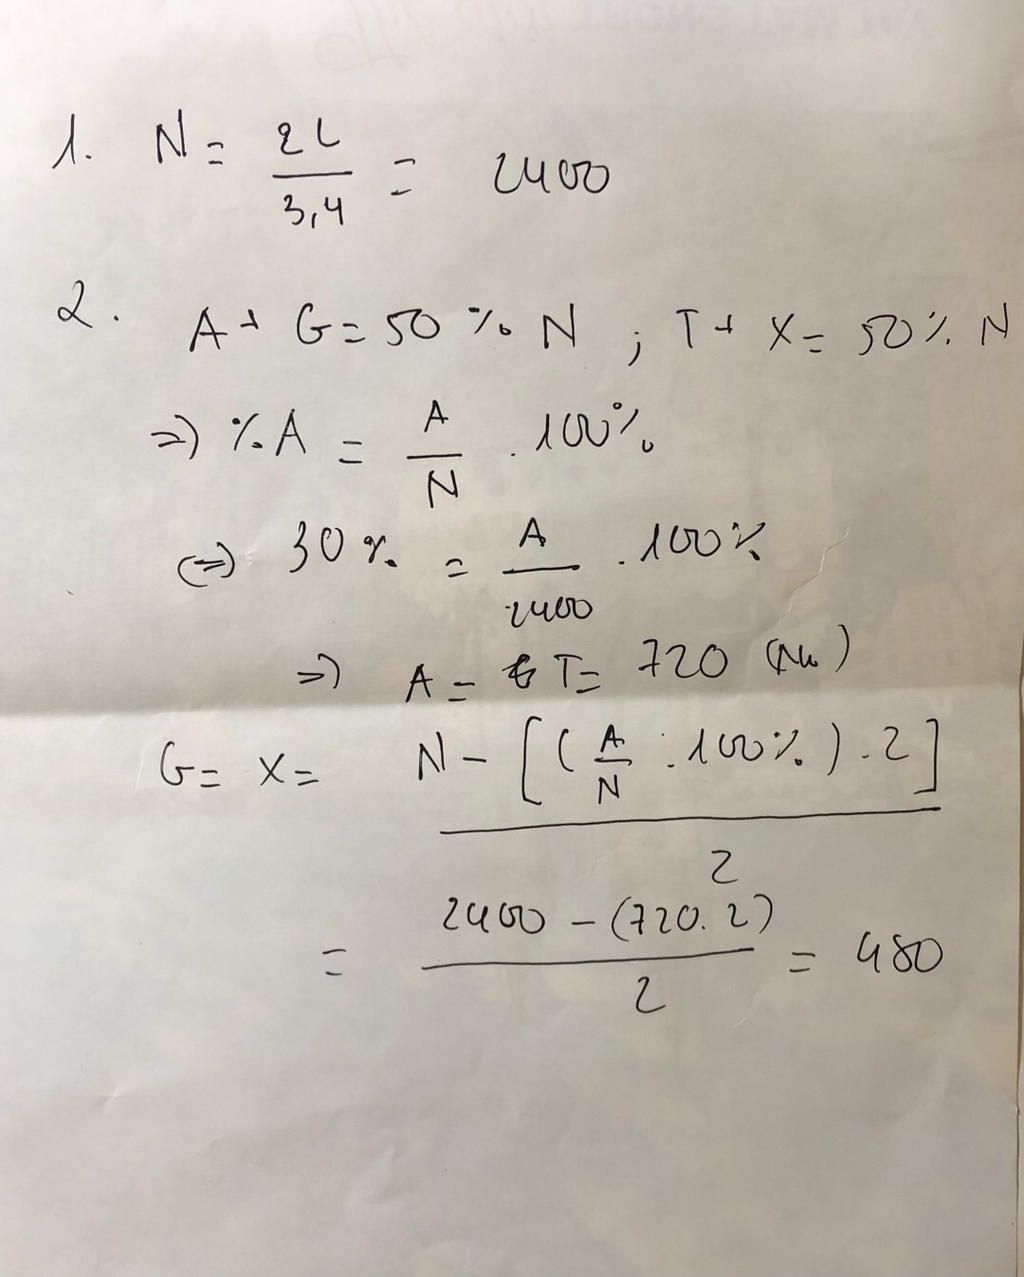 1. N = 2L / 3,4 = 2400
2. A + G = 50 % N ; T + X = 50 % N
=> % A = A / N . 100%
<=> 30 % = A / 2400 . 100%
=> A = T = 720 (Nu)
G = X = N - [ ( A / N . 100% ) . 2 ] / 2
= 2400 - (720. 2) / 2 = 480